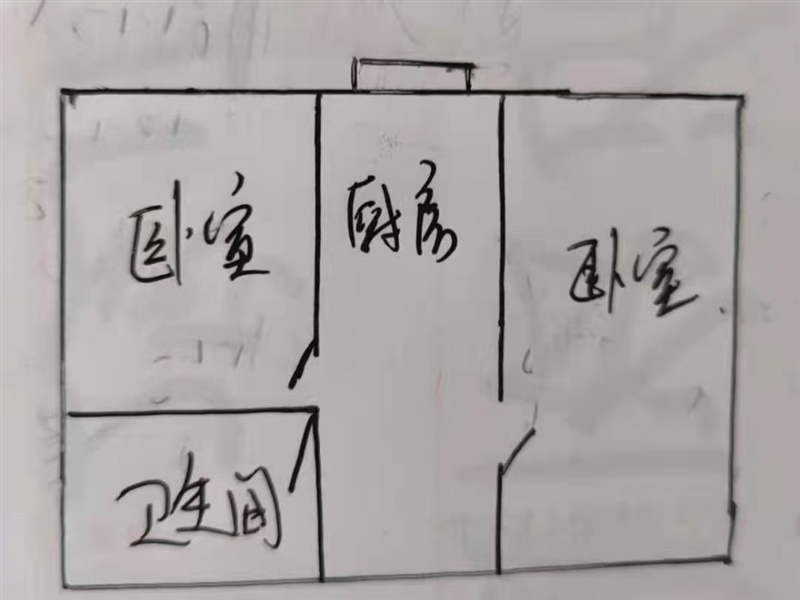 卧室
厨房
卧室
卫生间